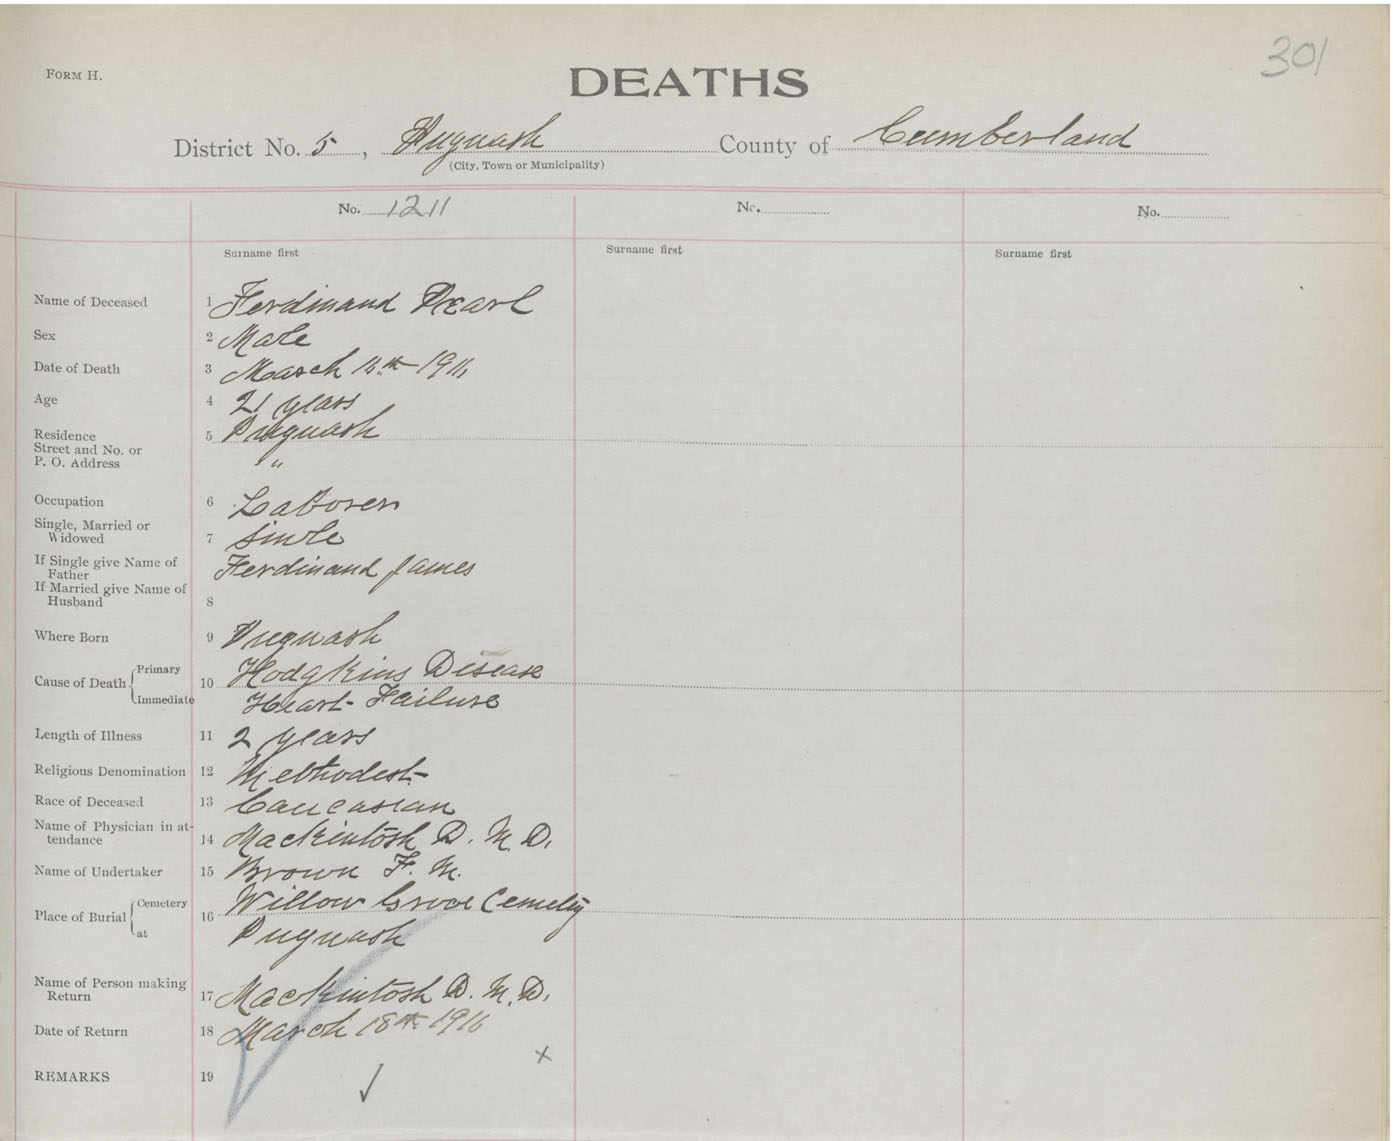 301
FORM H.
DEATHS
District No. 5, Pugwash County of Cumberland
(City, Town or Municipality)
No. 1211 No. No.
Surname first Surname first Surname first
Name of Deceased 1 Ferdinand Pearl
Sex 2 Male
Date of Death 3 March 1916
Age 4 21 years
Residence 5 Pugwash
Street and No. or
P. O. Address "
Occupation 6 Laborer
Single, Married or
Widowed 7 Sinle
If Single give Name of
Father Ferdinand James
If Married give Name of
Husband 8
Where Born 9 Pugwash
Cause of Death 10 Primary Hodgkins Disease
Immediate Heart Failure
Length of Illness 11 2 years
Religious Denomination 12 Methodest
Race of Deceased 13 Caucasian
Name of Physician in at-
tendance 14 Mackintosh D. M. D.
Name of Undertaker 15 Brown F. M.
Place of Burial 16 Cemetery Willow Grove Cemetry
at Pugwash
Name of Person making
Return 17 Mackintosh D. M. D.
Date of Return 18 March 18th 1916
REMARKS 19